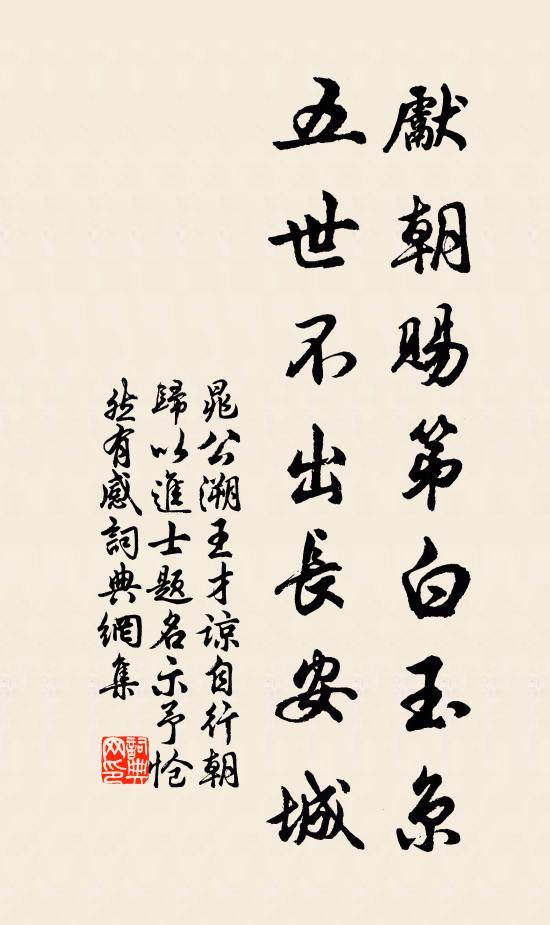 獻朝賜第白玉京
五世不出長安城
晁公溯王才諒自行朝
歸以進士題名示予愴
然有感詞典網集
詞典
网